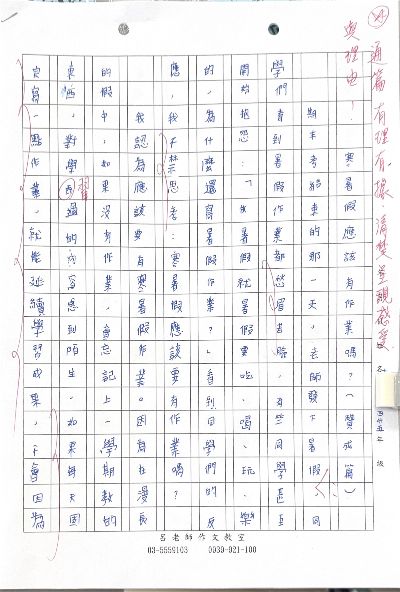 通篇有理有據,清楚呈現感受
與理由!
寒暑假應該有作業嗎?(贊成篇)
期末考結束的那一天,老師發下暑假同
學們看到暑假作業都愁眉苦臉,有些同學甚至
開始抱怨:「
的,為什麼還寫暑假作業?」看到同學們的反
應,我不禁思考:暑假應該要有作業嗎?
我認為應該要有寒暑假作業。因為在漫長
的假中,如果沒有作業,會忘記上學期教的
東西,對學習過的感到陌生。如果每天固
定寫一點作業,就能延續學習成果,不會因為
呂老師作文教室
03-5559103 0939-921-100